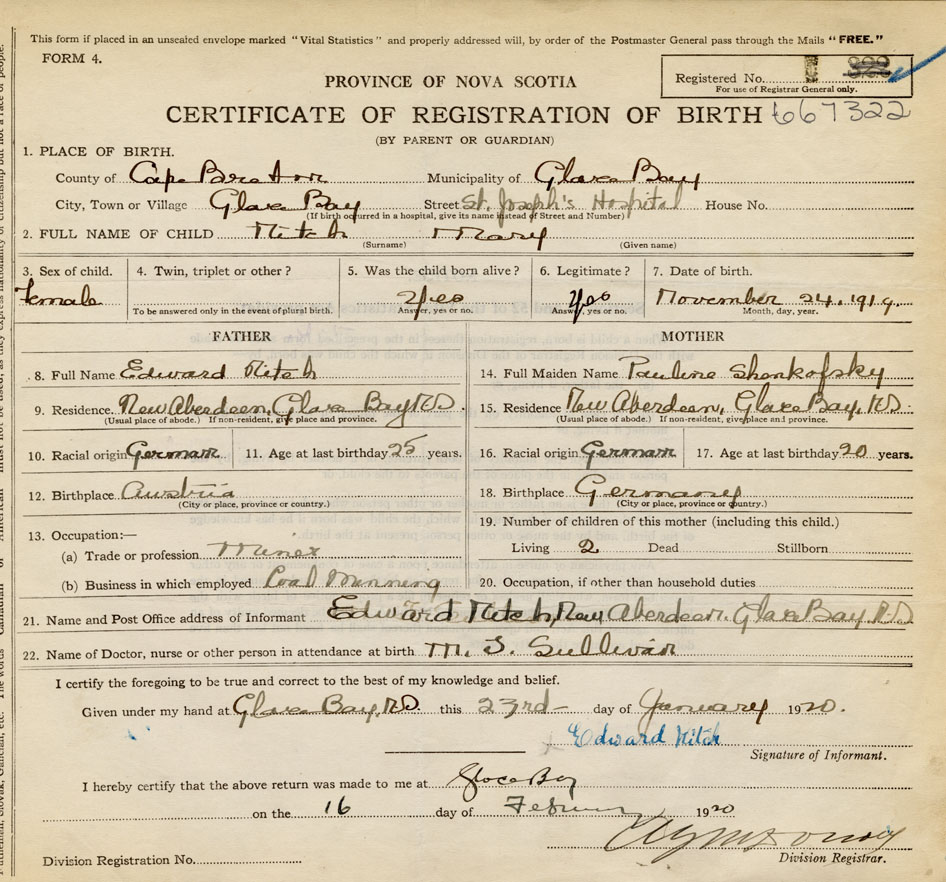 This form if placed in an unsealed envelope marked "Vital Statistics" and properly addressed will, by order of the Postmaster General pass through the Mails "FREE."
FORM 4.
Registered No.
For use of Registrar General only.
PROVINCE OF NOVA SCOTIA
CERTIFICATE OF REGISTRATION OF BIRTH 667322
(BY PARENT OR GUARDIAN)
1. PLACE OF BIRTH.
County of Cape Breton Municipality of Glace Bay
City, Town or Village Glace Bay Street St. Joseph's Hospital House No.
(If birth occurred in a hospital, give its name instead of Street and Number)
2. FULL NAME OF CHILD Nitch Mary
(Surname) (Given name)
3. Sex of child. 4. Twin, triplet or other? 5. Was the child born alive? 6. Legitimate? 7. Date of birth.
Female Yes Yes November 24, 1919.
To be answered only in the event of plural birth. Answer, yes or no. Answer, yes or no. Month, day, year.
FATHER MOTHER
8. Full Name Edward Nitch 14. Full Maiden Name Pauline Shonkofsky
9. Residence. New Aberdeen, Glace Bay N.S. 15. Residence New Aberdeen, Glace Bay, N.S.
(Usual place of abode.) If non-resident, give place and province. (Usual place of abode.) If non-resident, give place and province.
10. Racial origin German 11. Age at last birthday 25 years. 16. Racial origin German 17. Age at last birthday 20 years.
12. Birthplace Austria 18. Birthplace Germany
(City or place, province or country.) (City or place, province or country.)
13. Occupation:— 19. Number of children of this mother (including this child.)
(a) Trade or profession Miner Living 2 Dead Stillborn
(b) Business in which employed Coal Minning 20. Occupation, if other than household duties
21. Name and Post Office address of Informant Edward Nitch, New Aberdeen, Glace Bay, N.S.
22. Name of Doctor, nurse or other person in attendance at birth M. S. Sullivan
I certify the foregoing to be true and correct to the best of my knowledge and belief.
Given under my hand at Glace Bay, N.S. this 23rd day of January 1920.
Edward Nitch
Signature of Informant.
I hereby certify that the above return was made to me at Glace Bay
on the 16 day of February 1920
Division Registration No. Division Registrar.